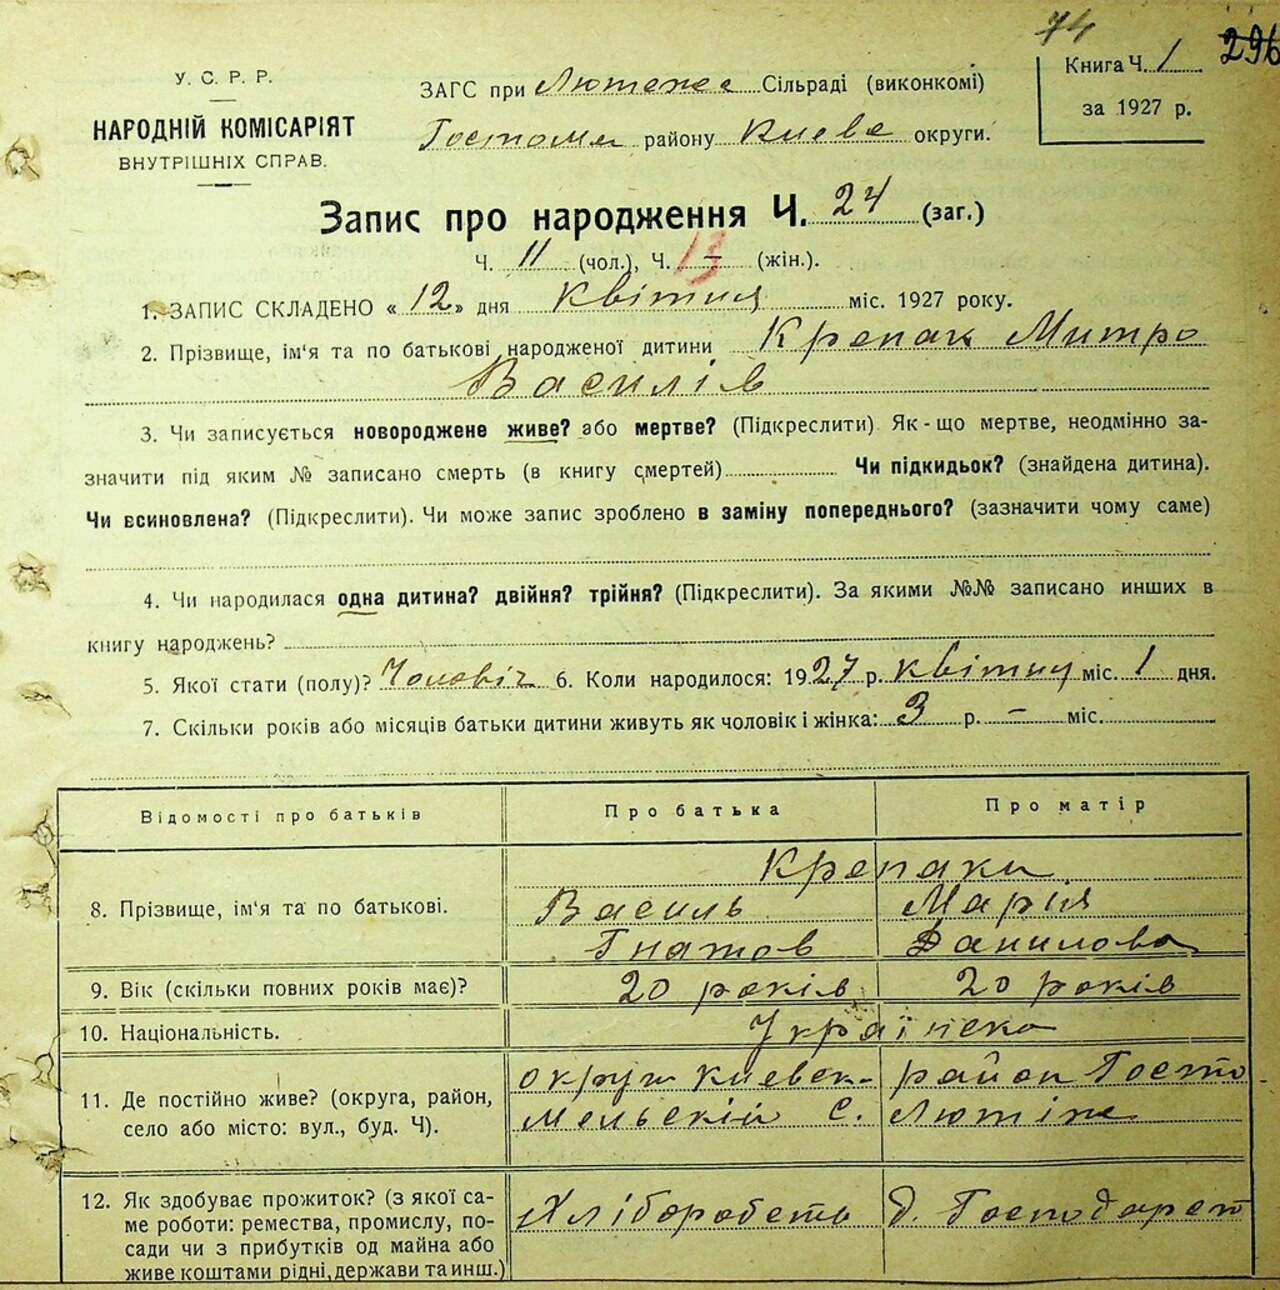 74
296
У. С. Р. Р.
НАРОДНІЙ КОМІСАРІЯТ
ВНУТРІШНІХ СПРАВ.
ЗАГС при Лютеже Сільраді (виконкомі)
Гостомл району Киеве округи.
Книга Ч. 1
за 1927 р.
Запис про народження Ч. 24 (заг.)
Ч. 11 (чол.), Ч. – (жін.).
13
1. ЗАПИС СКЛАДЕНО «12» дня квітня міс. 1927 року.
2. Прізвище, ім'я та по батькові народженої дитини Крепак Митро
Василів
3. Чи записується новороджене живе? або мертве? (Підкреслити) Як-що мертве, неодмінно за-
значити під яким № записано смерть (в книгу смертей) Чи підкидьок? (знайдена дитина).
Чи всиновлена? (Підкреслити). Чи може запис зроблено в заміну попереднього? (зазначити чому саме)
4. Чи народилася одна дитина? двійня? трійня? (Підкреслити). За якими №№ записано инших в
книгу народжень?
5. Якої стати (полу)? Чоловіч 6. Коли народилося: 1927 р. квітня міс. 1 дня.
7. Скільки років або місяців батьки дитини живуть як чоловік і жінка: 3 р. – міс.
Відомості про батьків Про батька Про матір
Крепаки
8. Прізвище, ім'я та по батькові. Василь Марія
Гнатов Данилова
9. Вік (скільки повних років має)? 20 років 20 років
10. Національність. Українска
округ Киевск- район Госто
11. Де постійно живе? (округа, район, мельский с. Лютіж
село або місто: вул., буд. Ч).
12. Як здобуває прожиток? (з якої са- Хліборобств д. Господарст
ме роботи: ремества, промислу, по-
сади чи з прибутків од майна або
живе коштами рідні, держави та инш.)